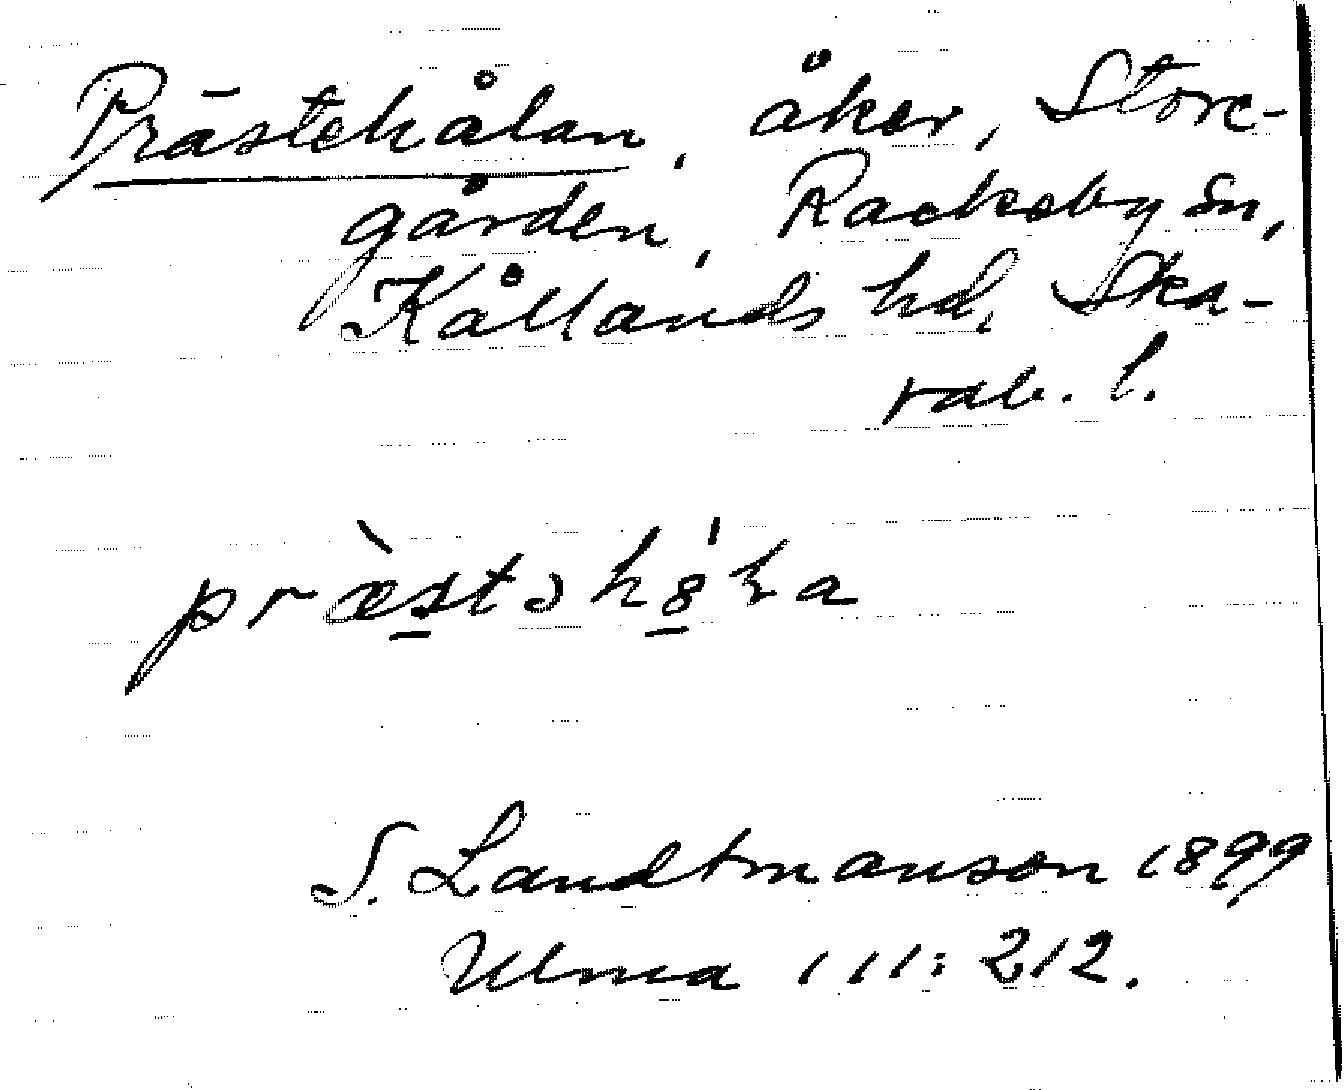 Prästehålan, åker, Store-
gården, Rackeby sn,
Kållands hd, Ska-
rab. l.
S. Landtmanson 1899
Ulma 111:212.